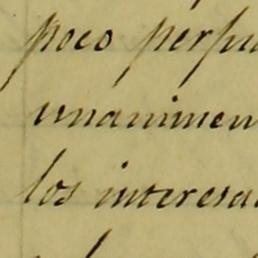 poco perju
unanimen
los interesa